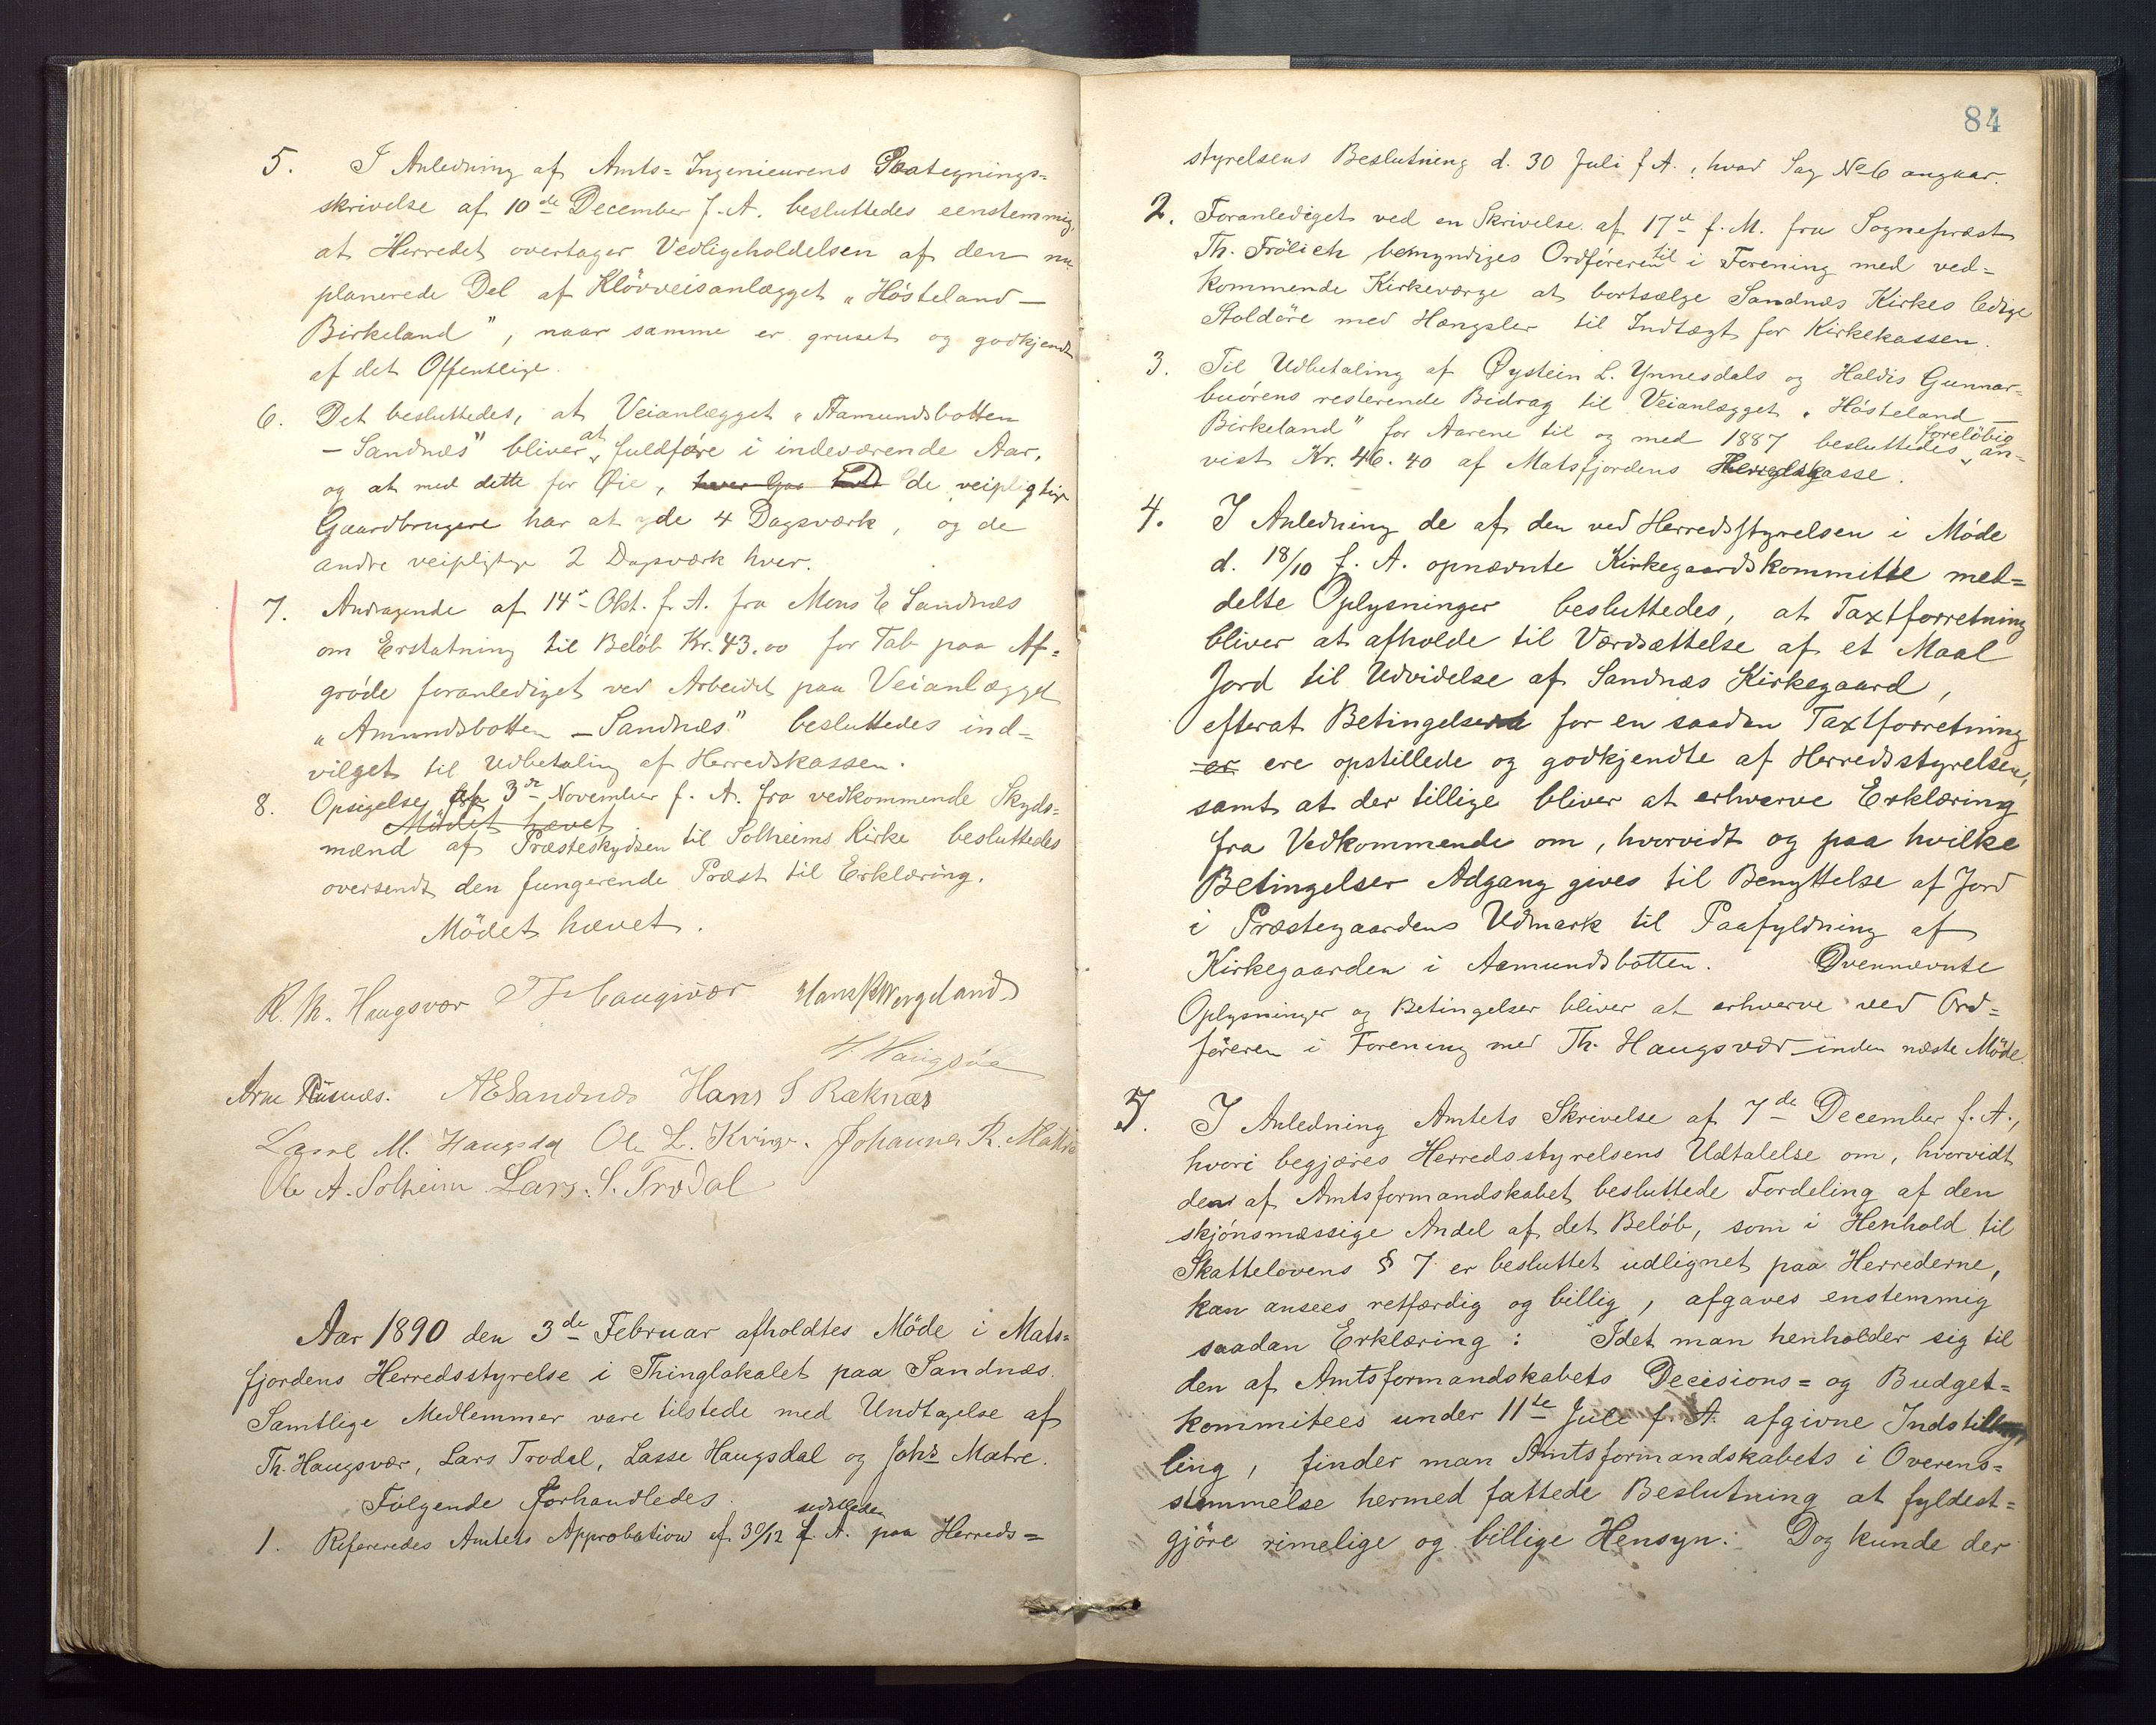 5. I Anledning af Amts-Ingenieurens Paategnings-
skrivelse af 10de December f. A. besluttedes eenstemmig,
at Herredet overtager Vedligeholdelsen af den nu
planerede Del af Kløvveisanlægget „Hösteland —
Birkeland", naar samme er gruset og godkjendt
af det Offentlige.
6. Det besluttedes, at Veianlægget „Aamundsbotten
— Sandnæs" bliver at fuldføre i indeværende Aar,
og at med dette for Øie, de veipligtige
Gaardbrugere har at yde 4 Dagsværk, og de
andre veipligtige 2 Dagsværk hver.
7. Andragende af 14de Okt. f. A. fra Mons E Sandnæs
om Erstatning til Beløb Kr. 43.00 for Tab paa Af-
gröde foranlediget ved Arbeidet paa Veianlægget
„Amundsbotten — Sandnæs" besluttedes ind-
vilget til Udbetaling af Herredskassen.
8. Opsigelse af 3de November f. A. fra vedkommende Skyds-
Mödet hævet
mænd af Præsteskydsen til Solheims Kirke besluttedes
oversendt den fungerende Præst til Erklæring.
Mödet hævet.
R. M. Haugsvær Th Haugsvær Hans R Wergeland
H. Haugsöe
Arne Risnæs. A E Sandnæs Hans S Ræknæs
Lasse M. Haugsdal Ole L. Kvinge. Johannes R. Matre
Ole A. Solheim Lars. S. Trodal
Aar 1890 den 3de Februar afholdtes Möde i Mats-
fjordens Herredsstyrelse i Thinglokalet paa Sandnæs.
Samtlige Medlemmer vare tilstede med Undtagelse af
Th. Haugsvær, Lars Trodal, Lasse Haugsdal og Johs Matre.
Følgende forhandledes.
udstædte
1. Refereredes Amtets Approbation af 30/12 f. A. paa Herreds-
84
styrelsens Beslutning d. 30 Juli f A., hvad Sag No 6 angaar.
2. Foranlediget ved en Skrivelse af 17de f. M. fra Sognepræst
Th. Frölich bemyndiges Ordföreren til i Forening med ved-
kommende Kirkeværge at bortsælge Sandnæs Kirkes ledige
Stoldöre med Hængsler til Indtægt for Kirkekassen.
3. Til Udbetaling af Øystein L. Ynnesdals og Haldis Gunnar-
buörens resterende Bidrag til Veianlægget „Hösteland —
Birkeland" for Aarene til og med 1887 besluttedes foreløbig an-
vist Kr. 46.40 af Matsfjordens Herredskasse.
4. I Anledning de af den ved Herredsstyrelsen i Möde
d. 18/10 f. A. opnævnte Kirkegaardskommitte med-
delte Oplysninger besluttedes, at Taxtforretning
bliver at afholde til Værdsættelse af et Maal
Jord til Udvidelse af Sandnæs Kirkegaard,
efterat Betingelserne for en saadan Taxtforretning
er ere opstillede og godkjendte af Herredsstyrelsen,
samt at der tillige bliver at erhverve Erklæring
fra Vedkommende om, hvorvidt og paa hvilke
Betingelser Adgang gives til Benyttelse af Jord
i Præstegaardens Udmark til Paafyldning af
Kirkegaarden i Aamundsbotten. Ovennævnte
Oplysninger og Betingelser bliver at erhverve ved Ord-
føreren i Forening med Th. Haugsvær inden næste Möde.
5. I Anledning Amtets Skrivelse af 7de December f. A.,
hvori begjæres Herredsstyrelsens Udtalelse om, hvorvidt
den af Amtsformandskabet besluttede Fordeling af den
skjønsmæssige Andel af det Beløb, som i Henhold til
Skattelovens § 7 er besluttet udlignet paa Herrederne,
kan ansees retfærdig og billig, afgaves enstemmig
saadan Erklæring: Idet man henholder sig til
den af Amtsformandskabets Decisions- og Budget-
kommitees under 11te Juli f. A. afgivne Indstil-
ling, finder man Amtsformandskabets i Overens-
stemmelse hermed fattede Beslutning at fyldest-
gjöre rimelige og billige Hensyn: Dog kunde der